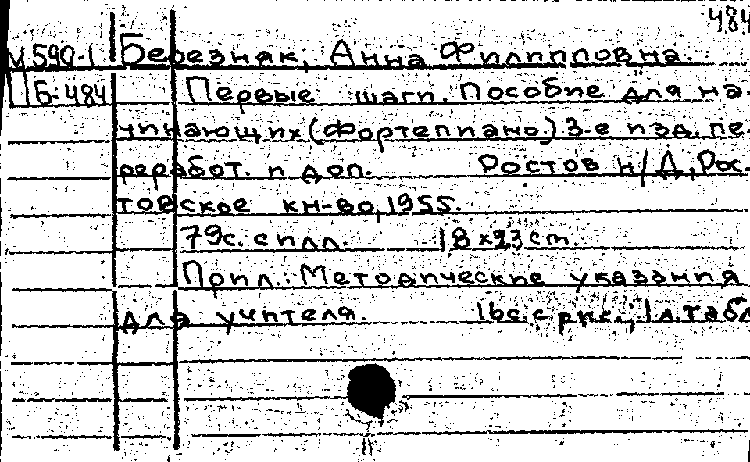 484
М 590-1 Березняк, Анна Филипповна.
Б-484 Первые шаги. Пособие для на-
чинающих (фортепиано). 3-е изд. пе-
реработ. и доп. Ростов н/Д, Рос-
товское кн-во, 1955.
79с. с илл. 18x23 cm.
Прил.: Методические указания
для учителя. 16с. с рис., 1л. табл